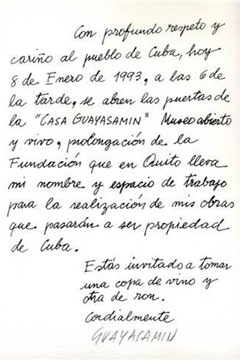 Con profundo respeto y
cariño al pueblo de Cuba, hoy
8 de Enero de 1993, a las 6 de
la tarde, se abren las puertas de
la "CASA GUAYASAMIN" Museo abierto
y vivo, prolongación de la
Fundación que en Quito lleva
mi nombre y espacio de trabajo
para la realización de mis obras
que pasarán a ser propiedad
de Cuba.
Estás invitado a tomar
una copa de vino y
otra de ron.
Cordialmente
GUAYASAMIN